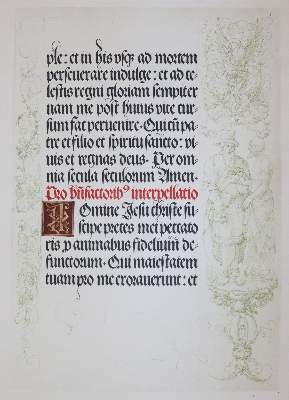 ple: et in his vsq; ad mortem
perseuerare indulge: et ad ce-
lestis regni gloriam sempiter
nam me post huius vite cur-
sum fac peruenire. Qui cū pa-
tre et filio et spiritu sancto: vi-
uis et regnas deus. Per om-
nia secula seculorum Amen.
Pro bn̄factoribꝰ interpellatio
Domine Jesu christe su-
scipe preces mei peccato
ris p animabus fidelium de-
functorum. Qui maiestatem
tuam pro me exorauerunt: et